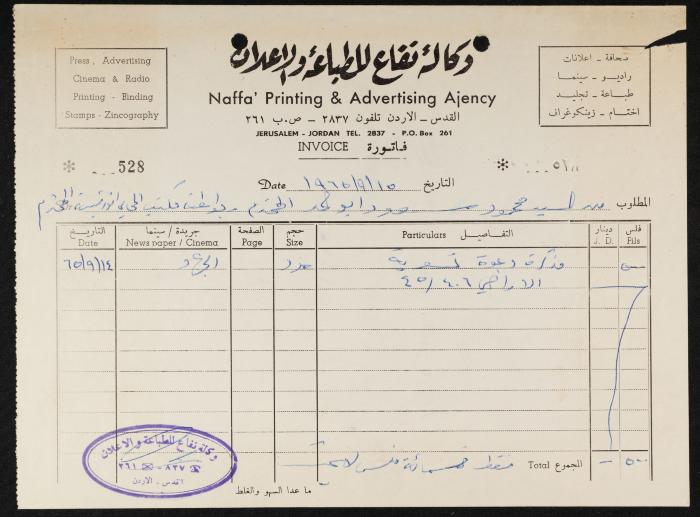 Press , Advertising
Cinema & Radio
Printing - Binding
Stamps - Zincography
وكالة نفاع للطباعة والاعلان
Naffa' Printing & Advertising Ajency
القدس - الاردن تلفون ٢٨٣٧ - ص.ب ٢٦١
JERUSALEM - JORDAN TEL. 2837 - P.O. Box 261
صحافة - اعلانات
راديو - سينما
طباعة - تجليد
اختام - زينكوغراف
INVOICE فاتورة
528
٥٢٨
Date ١٩٦٥/٩/١٥ التاريخ
المطلوب من السيد محمود ابو المحترم
التاريخ Date
جريدة / سينما News paper / Cinema
الصفحة Page
حجم Size
Particulars التفاصيل
دينار J. D.
فلس Fils
٦٥/٩/١٤ الجهاد عدد مذكرة دعوة تسوية ٥٠٠
الاراضي ٤٥/٤٠٦
فقط خمسمائة فلس لا غير Total المجموع - ٥٠٠
ما عدا السهو والغلط
وكالة نفاع للطباعة والاعلان
٢٦١ ٨٣٧
القدس - الاردن